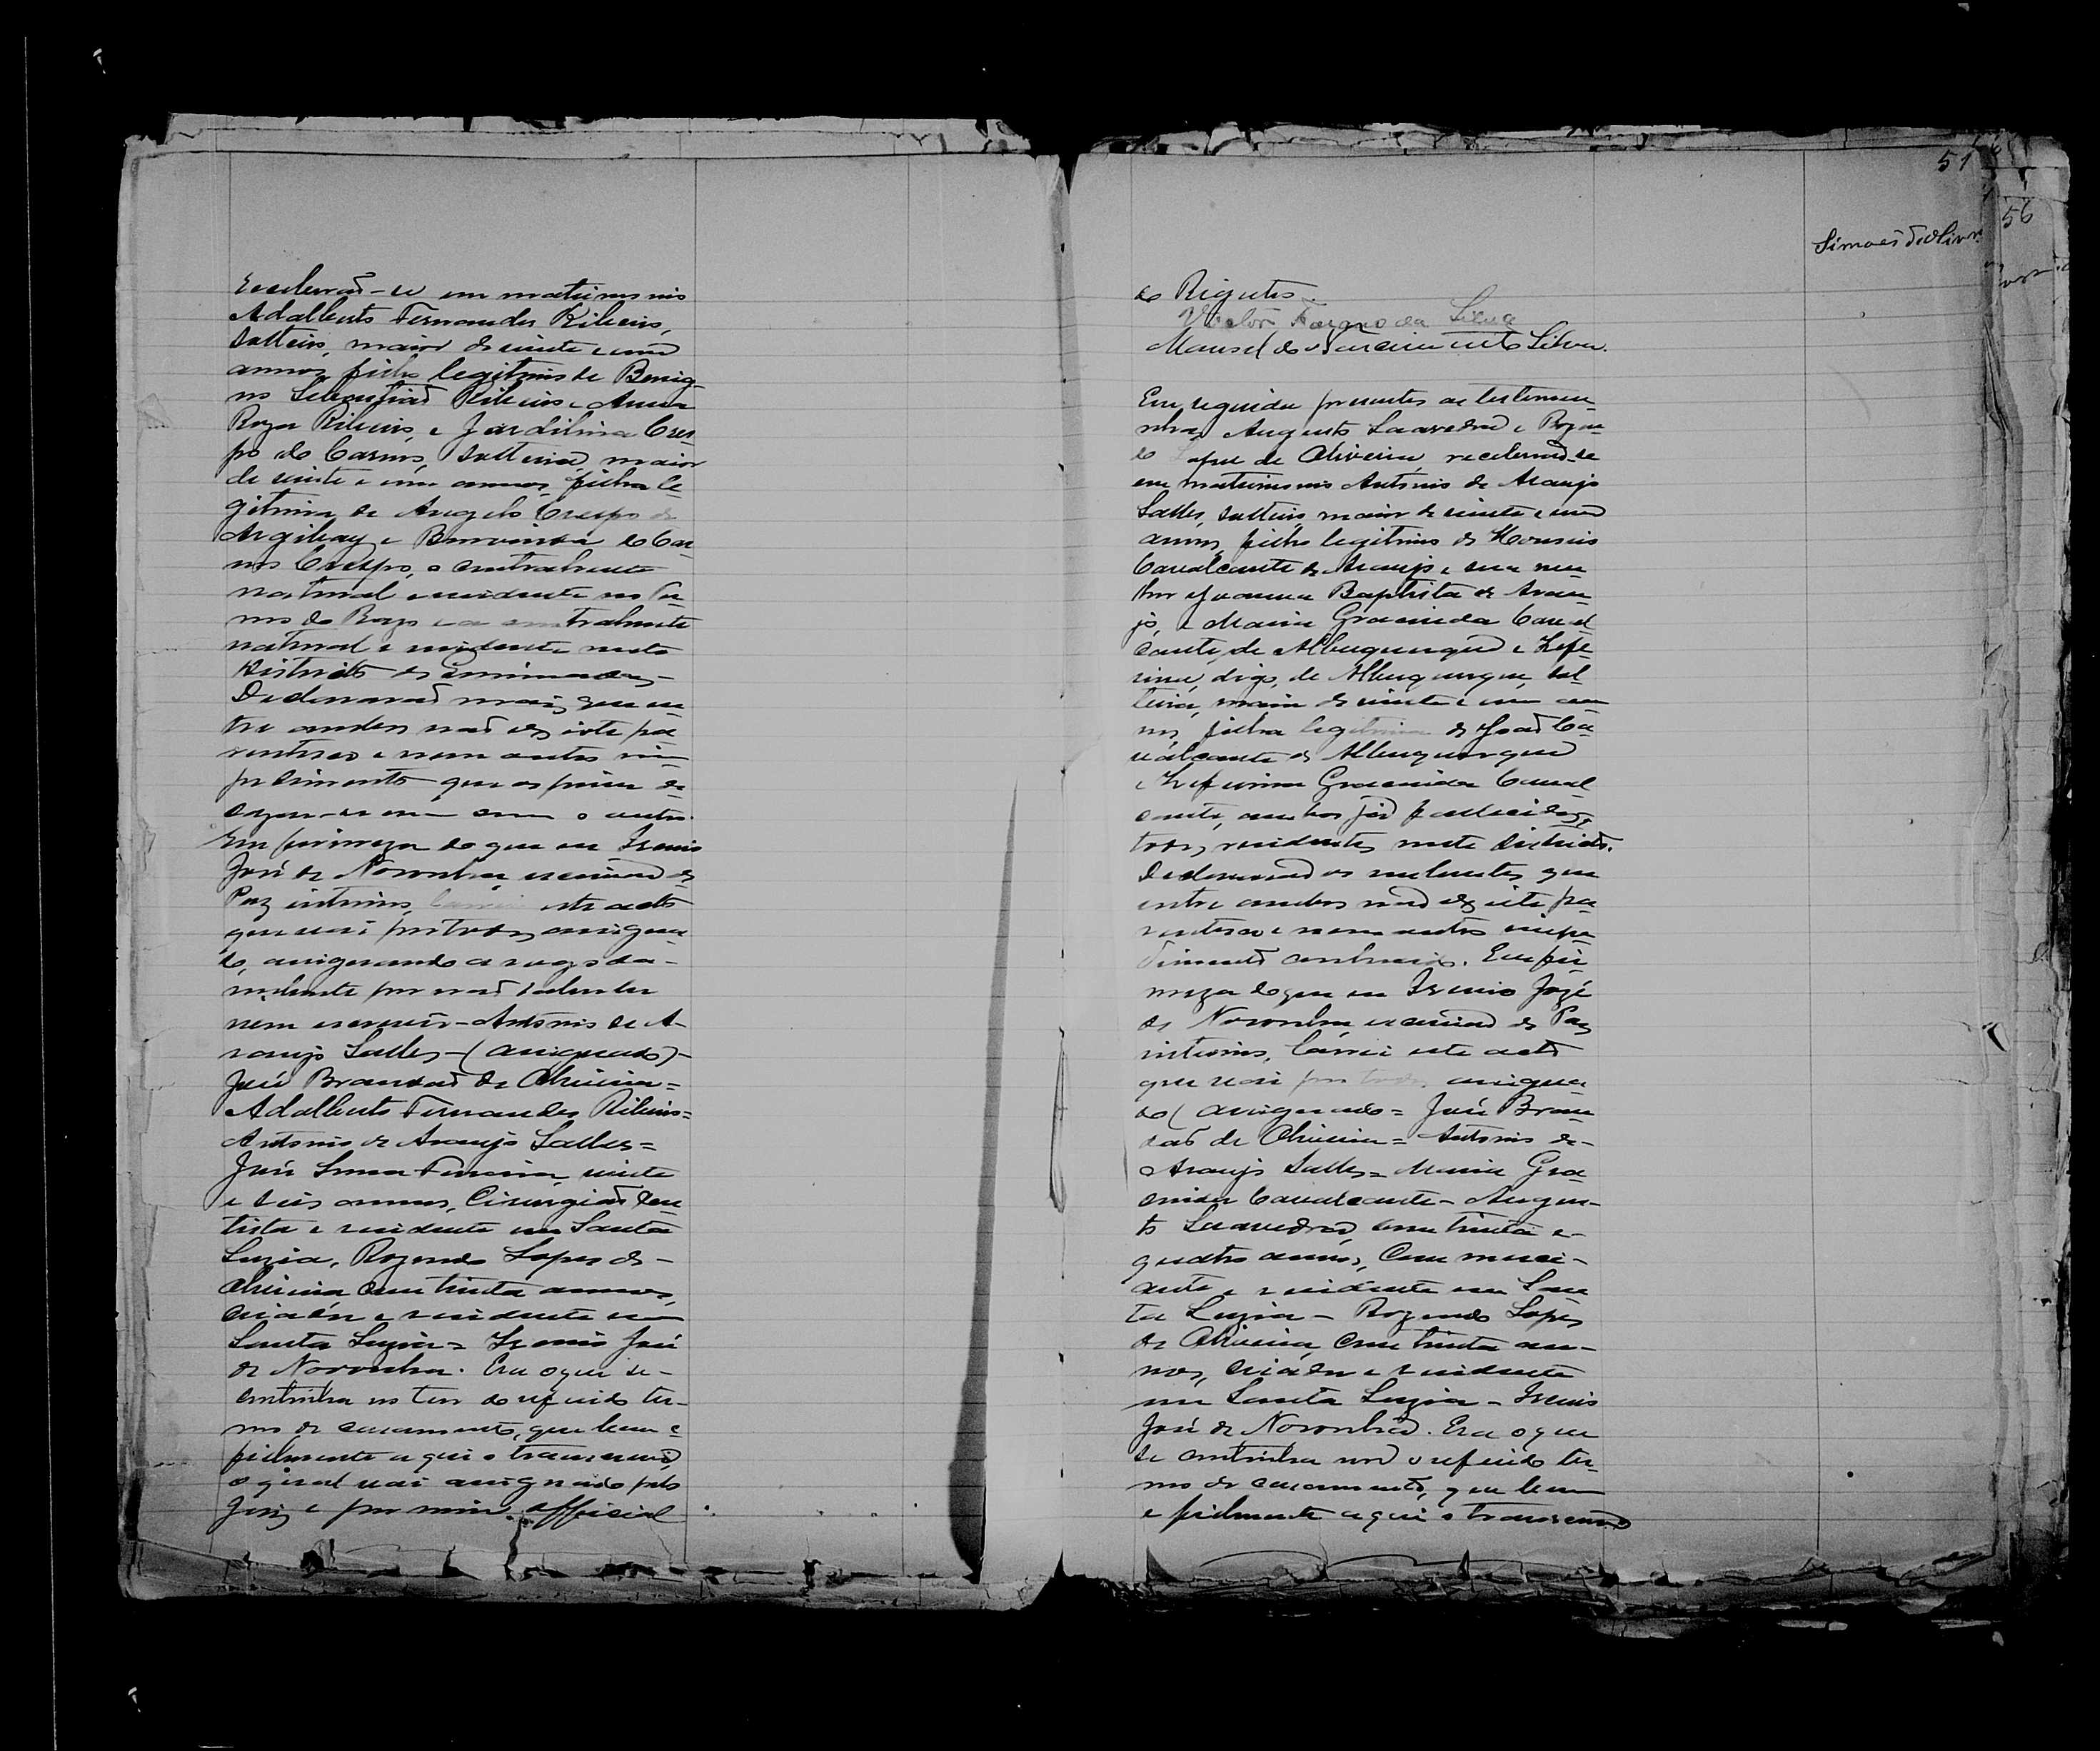 Receberão-se em matrimonio
Adalberto Fernandes Ribeiro,
solteiro, maior de vinte e um
annos, filho legitimo de Benig-
no Sebastião Ribeiro e Anna
Roza Ribeiro, e Jardilina Cres-
po do Carmo, solteira, maior
de vinte e um annos, filha le-
gitima de Angelo Crespo de
Argibay e Bemvinda do Car-
mo Crespo, o contrahente
natural e residente no
do e a contrahente
natural e residente neste
Districto de
Declararão mais que en-
tre ambos não existe pa-
rentesco e nem outro im-
pedimento que os prive de
cazar-se um com o outro.
Em firmeza do que eu Irenio
José de Noronha, escrivão de
Paz interino, lavrei este acto
que vai por todos assigna-
do, assignando a rogo da
nubente por não saber ler
nem escrever - Antonio de A-
raujo Salles - (assignado) -
José Brandão de Oliveira =
Adalberto Fernandes Ribeiro =
Antonio de Araujo Salles =
José Ferreira, vinte
e seis annos, Cirurgião Den-
tista e residente em Santa
Luzia, Rozendo Lopes de -
Oliveira com trinta annos,
criador e residente em
Santa Luzia = Irenio José
de Noronha. Era o que se -
continha no teor do referido ter-
mo de casamento, que bem e
fielmente aqui o transcrevi,
o qual vai assignado pelo
Juiz e por mim official
51
56
Simões de Oliveira
do Registro.
Victor da Silva
Manoel do Nascimento Silva.
Em seguida presentes as testemu-
nhas Augusto Saavedra e Rozen-
do Lopes de Oliveira, receberão-se
em matrimonio Antonio de Araujo
Salles, solteiro, maior de vinte e um
annos, filho legitimo de
Cavalcante de Araujo e sua mu-
lher Joanna Baptista de Arau-
jo, e Maria Gracinda Caval-
cante, de Albuquerque e Zefe-
rina, digo, de Albuquerque, sol-
teira, maior de vinte e um an-
nos, filha legitima de João Ca-
valcante de Albuquerque
e Zeferina Gracinda Caval-
cante, ambos já fallecidos,
todos residentes neste Districto.
Declararão os nubentes que
entre ambos não existe pa-
rentesco e nem outro impe-
dimento contrario. Em fir-
meza do que eu Irenio José
de Noronha, escrivão de Paz
interino, lavrei este acto
que vai por todos assigna-
do (assignado = José Bran-
dão de Oliveira = Antonio de -
Araujo Salles = Maria Gra-
cinda Cavalcante - Augus-
to Saavedra, com trinta e -
quatro annos, Commerci-
ante e residente em San-
ta Luzia - Rozendo Lopes
de Oliveira com trinta an-
nos, criador e residente
em Santa Luzia - Irenio
José de Noronha. Era o que
se continha no referido ter-
mo de casamento, que bem
e fielmente aqui o transcrevi